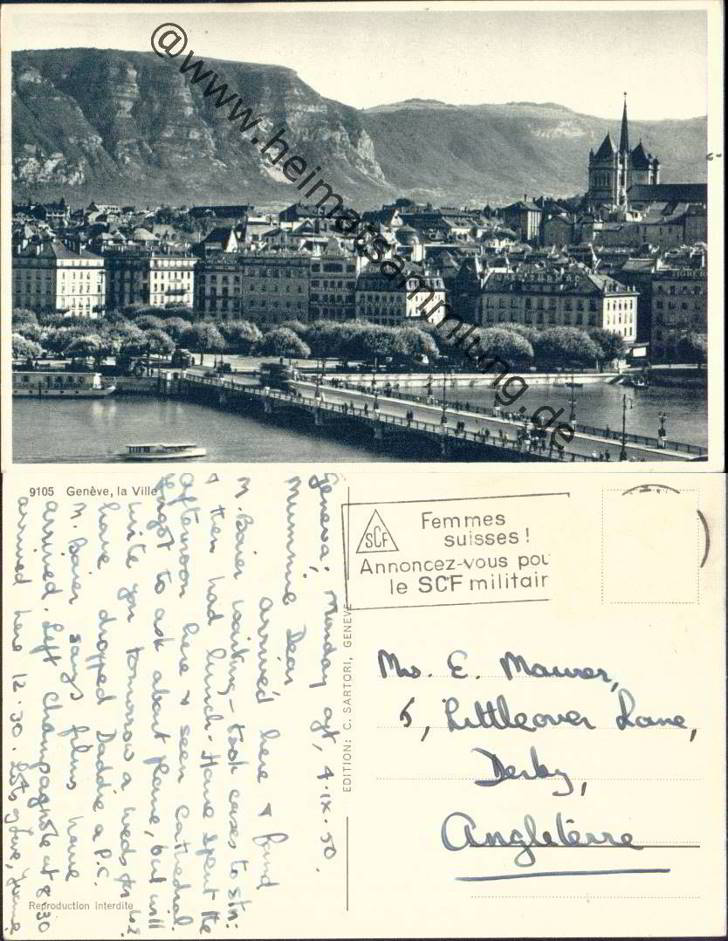 @www.heimatsammlung.de
9105 Genève, la Ville
Geneva, Monday aft, 4.IX.50.
Mummie Dear
arrived here & find
M. Baier waiting – took cases to stn:
& then had lunch. Have spent the
afternoon here & seen Cathedral.
forgot to ask about plane, but will
write you tomorrow
have dropped Daddie a P.C.
M. Baier says films have
arrived. Left Champagnole at 8.30
arrived here 12.30. Lots Love,
Reproduction interdite
EDITION: C. SARTORI, GENEVE
SCF
Femmes
suisses!
Annoncez-vous pou
le SCF militair
Mrs. E. Maurer,
5, Littleover Lane,
Derby,
Angleterre